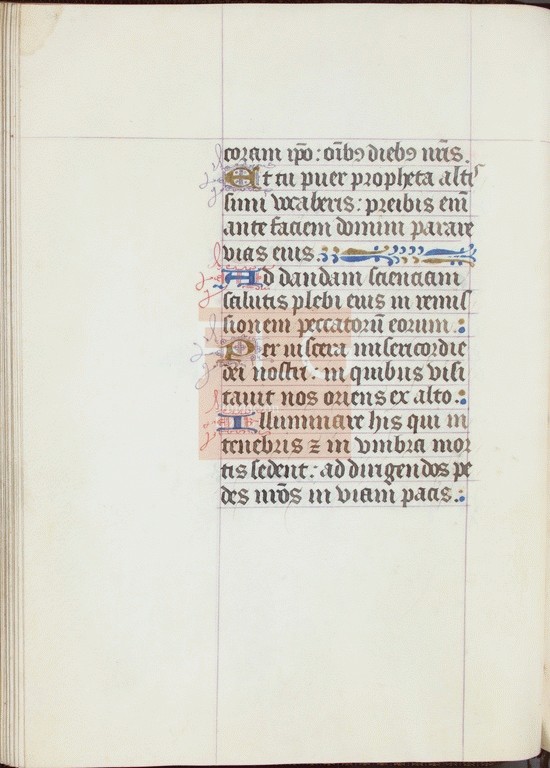 coram ip̄o: oīb9 dieb9 nr̄is.
Et tu puer propheta altis
simi vocaberis: preibis enī
ante faciem domini parare
vias eius.
Ad dandam scienciam
salutis plebi eius in remis
sionem peccatorū eorum.
Per viscera misericordie
dei nostri: in quibus visi
tauit nos oriens ex alto.
Illuminare his qui in
tenebris ⁊ in vmbra mor
tis sedent: ad dirigendos pe
des nr̄os in viam pacis.